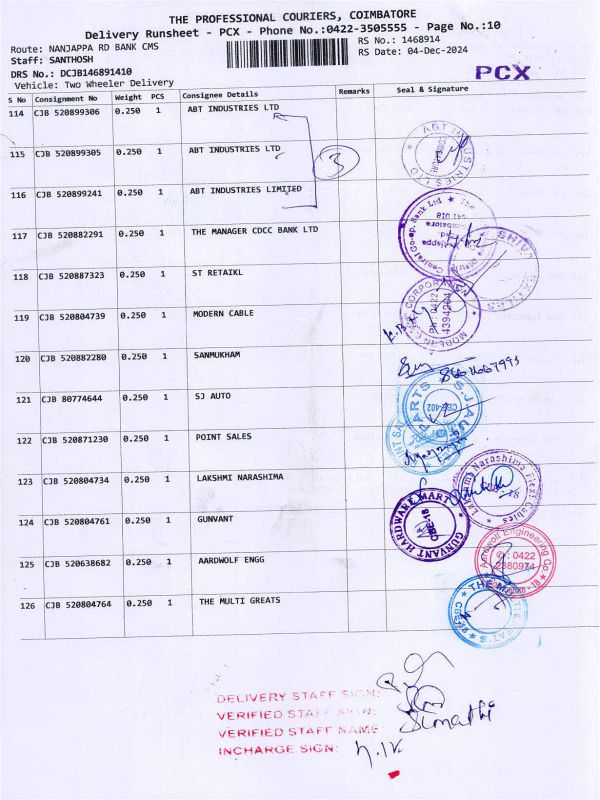 THE PROFESSIONAL COURIERS, COIMBATORE
Delivery Runsheet - PCX - Phone No.:0422-3505555 - Page No.:10
Route: NANJAPPA RD BANK CMS
RS No.: 1468914
Staff: SANTHOSH
RS Date: 04-Dec-2024
DRS No.: DCJB146891410
PCX
Vehicle: Two Wheeler Delivery
S No Consignment No Weight PCS Consignee Details Remarks Seal & Signature
114 CJB 520899306 0.250 1 ABT INDUSTRIES LTD
115 CJB 520899305 0.250 1 ABT INDUSTRIES LTD
3
116 CJB 520899241 0.250 1 ABT INDUSTRIES LIMITED
117 CJB 520882291 0.250 1 THE MANAGER CDCC BANK LTD
118 CJB 520887323 0.250 1 ST RETAIKL
119 CJB 520804739 0.250 1 MODERN CABLE
120 CJB 520882280 0.250 1 SANMUKHAM
121 CJB 80774644 0.250 1 SJ AUTO
122 CJB 520871230 0.250 1 POINT SALES
123 CJB 520804734 0.250 1 LAKSHMI NARASHIMA
124 CJB 520804761 0.250 1 GUNVANT
125 CJB 520638682 0.250 1 AARDWOLF ENGG
126 CJB 520804764 0.250 1 THE MULTI GREATS
ABT INDUSTRIES LTD
Central Co-op. Bank Ltd.
CORPORATION
PH: 0422
4394204
S.J.AUTO PARTS
CBE-402
Lakshmi Narashima Flexi Cables
GUNVANT HARDWARE MART
CBE-18
Aardwolf Engineering Co.
0422
2380974
DELIVERY STAFF SIGN:
VERIFIED STAFF SIGN:
VERIFIED STAFF NAME
Sumathi
INCHARGE SIGN: